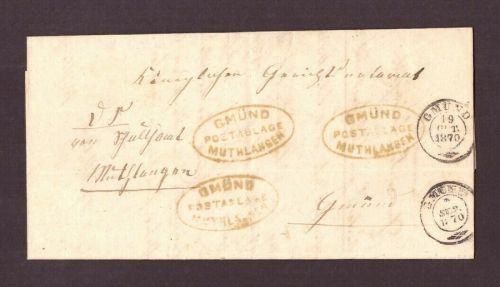 Königlichen Gerichtsnotariat
GMÜND
19
OCT.
1870
GMÜND
POSTABLAGE
MUTHLANGEN
GMÜND
POSTABLAGE
MUTHLANGEN
Muthlangen
GMÜND
POSTABLAGE
MUTHLANGEN
Gmünd
GMÜND
SEP.
1870